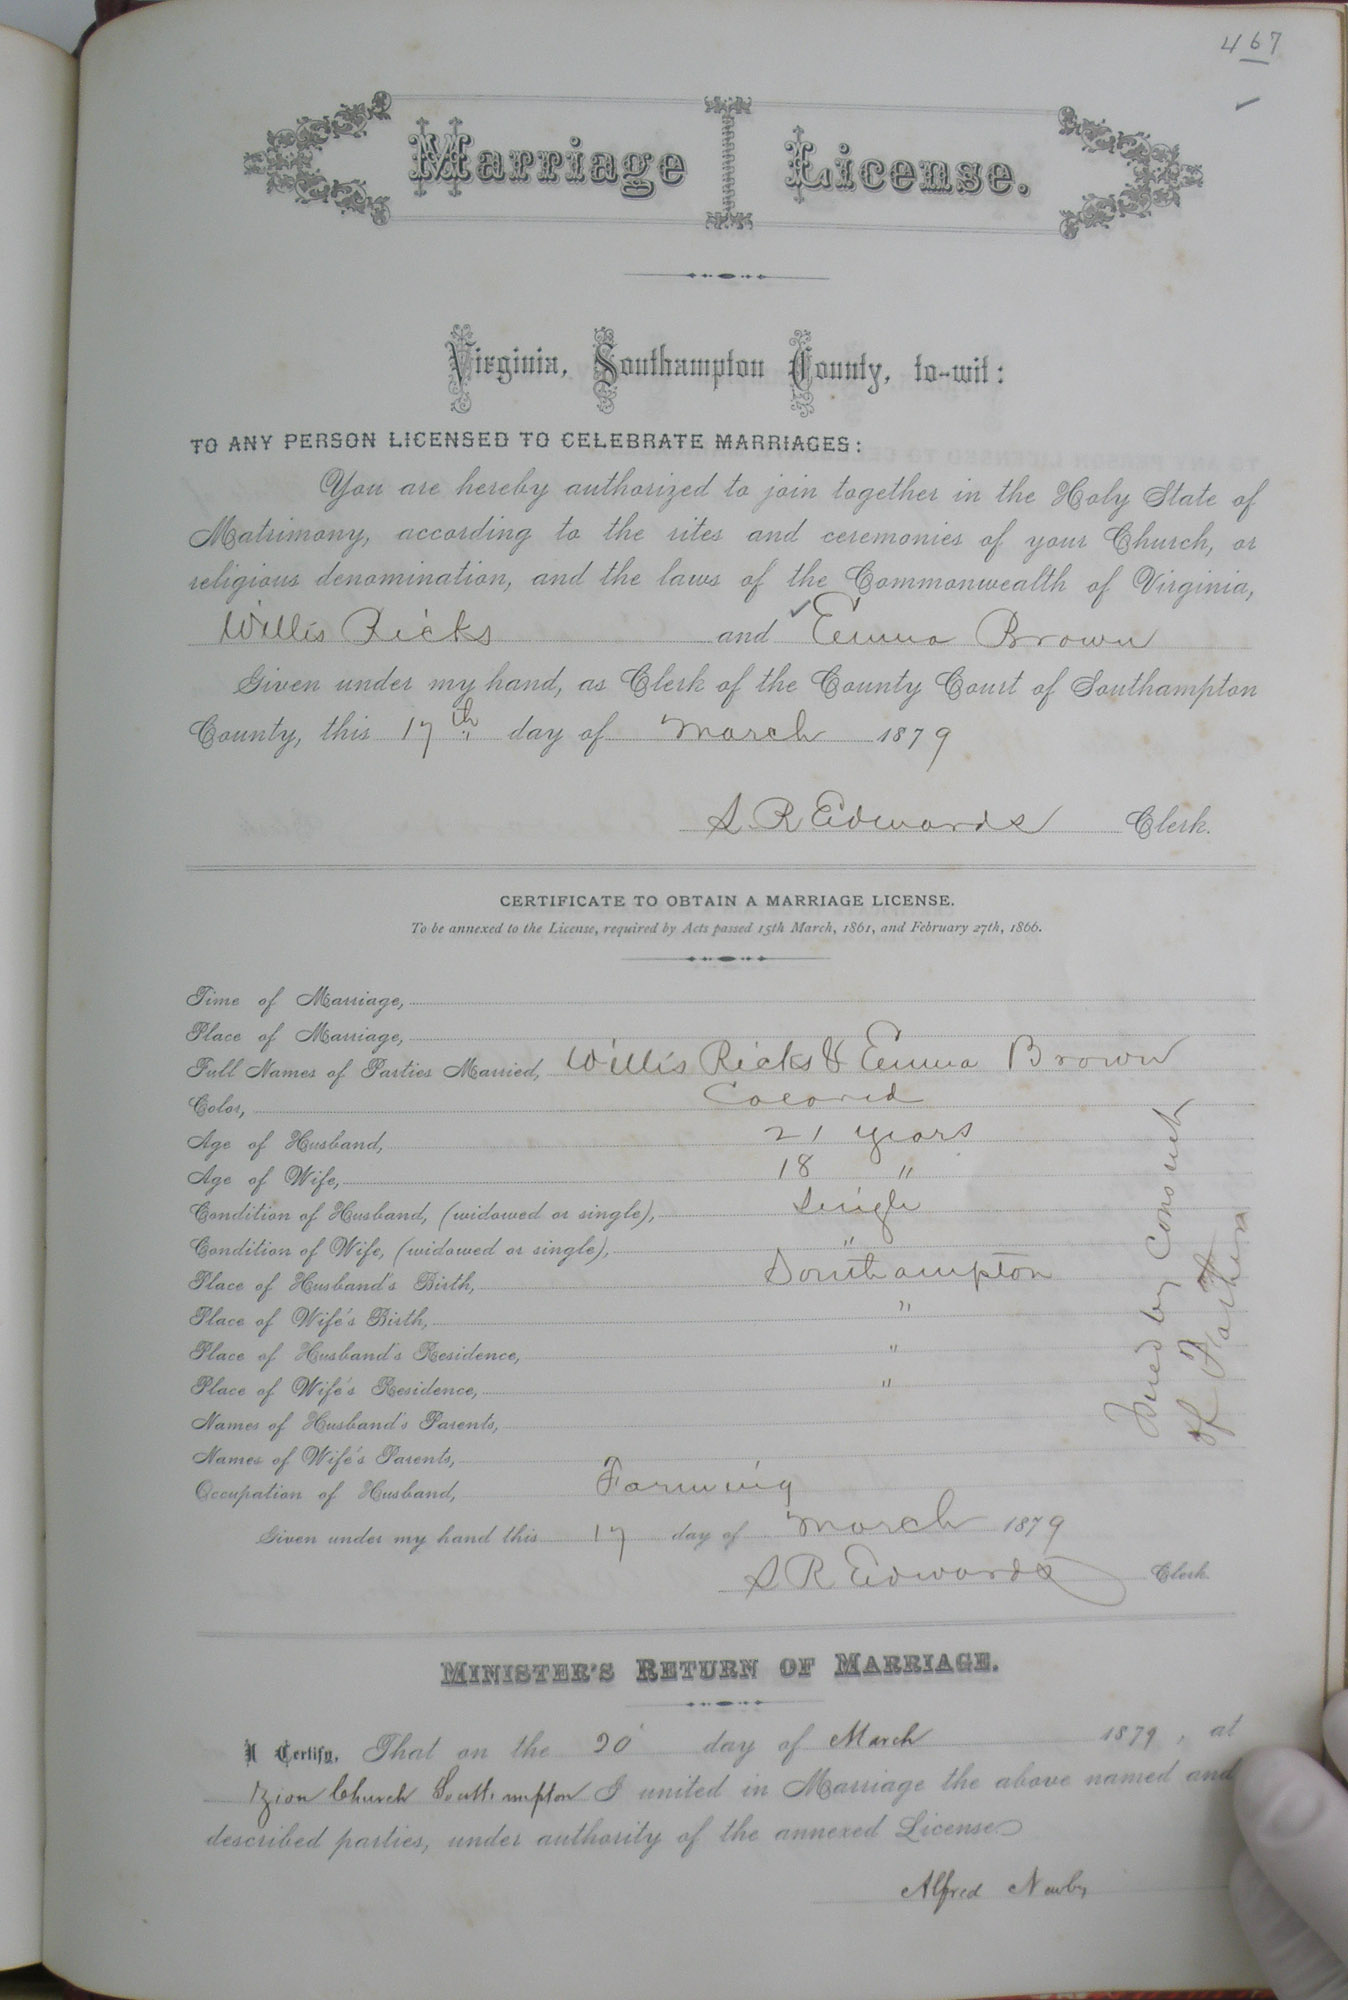 467
Marriage License.
Virginia, Southampton County, to-wit:
TO ANY PERSON LICENSED TO CELEBRATE MARRIAGES:
You are hereby authorized to join together in the Holy State of
Matrimony, according to the rites and ceremonies of your Church, or
religious denomination, and the laws of the Commonwealth of Virginia,
Willis Ricks and Emma Brown
Given under my hand, as Clerk of the County Court of Southampton
County, this 17th day of March 1879
S R Edwards Clerk.
CERTIFICATE TO OBTAIN A MARRIAGE LICENSE.
To be annexed to the License, required by Acts passed 15th March, 1861, and February 27th, 1866.
Time of Marriage,
Place of Marriage,
Full Names of Parties Married, Willis Ricks & Emma Brown
Color, Colored
Age of Husband, 21 years
Age of Wife, 18 "
Condition of Husband, (widowed or single), Single
Condition of Wife, (widowed or single), "
Place of Husband's Birth, Southampton
Place of Wife's Birth, "
Place of Husband's Residence, "
Place of Wife's Residence, "
Names of Husband's Parents,
Names of Wife's Parents,
Occupation of Husband, Farming
by consent
of Father
Given under my hand this 17 day of March 1879
S R Edwards Clerk.
MINISTER'S RETURN OF MARRIAGE.
I Certify, That on the 20 day of March 1879, at
Zion Church Southampton I united in Marriage the above named and
described parties, under authority of the annexed License
Alfred Newby